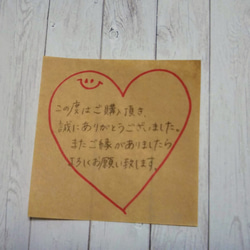 この度はご購入頂き、
誠にありがとうございました。
またご縁がありましたら
よろしくお願い致します。